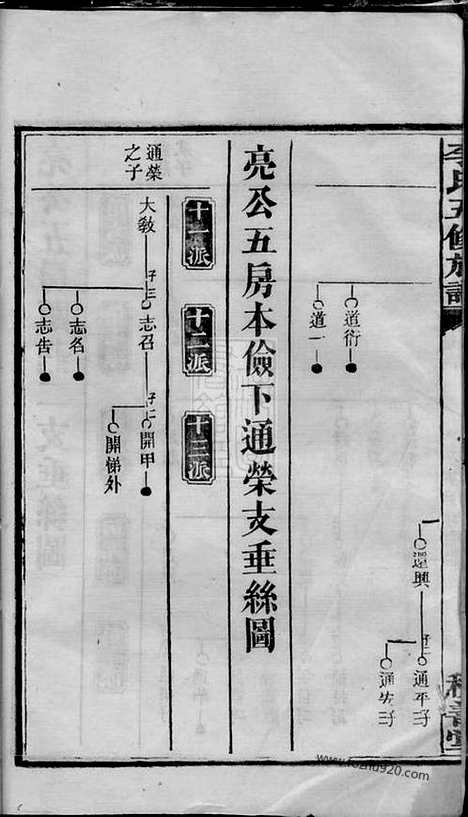 李氏五修族譜
道興
子二
通平 子
通安 子
道衍
道一
亮公五房本儉下通榮支垂絲圖
十一派
十二派
十三派
通榮之子
大敎
子三
志召
子二
開甲
開悌外
志名
志告
www.fozhu920.com